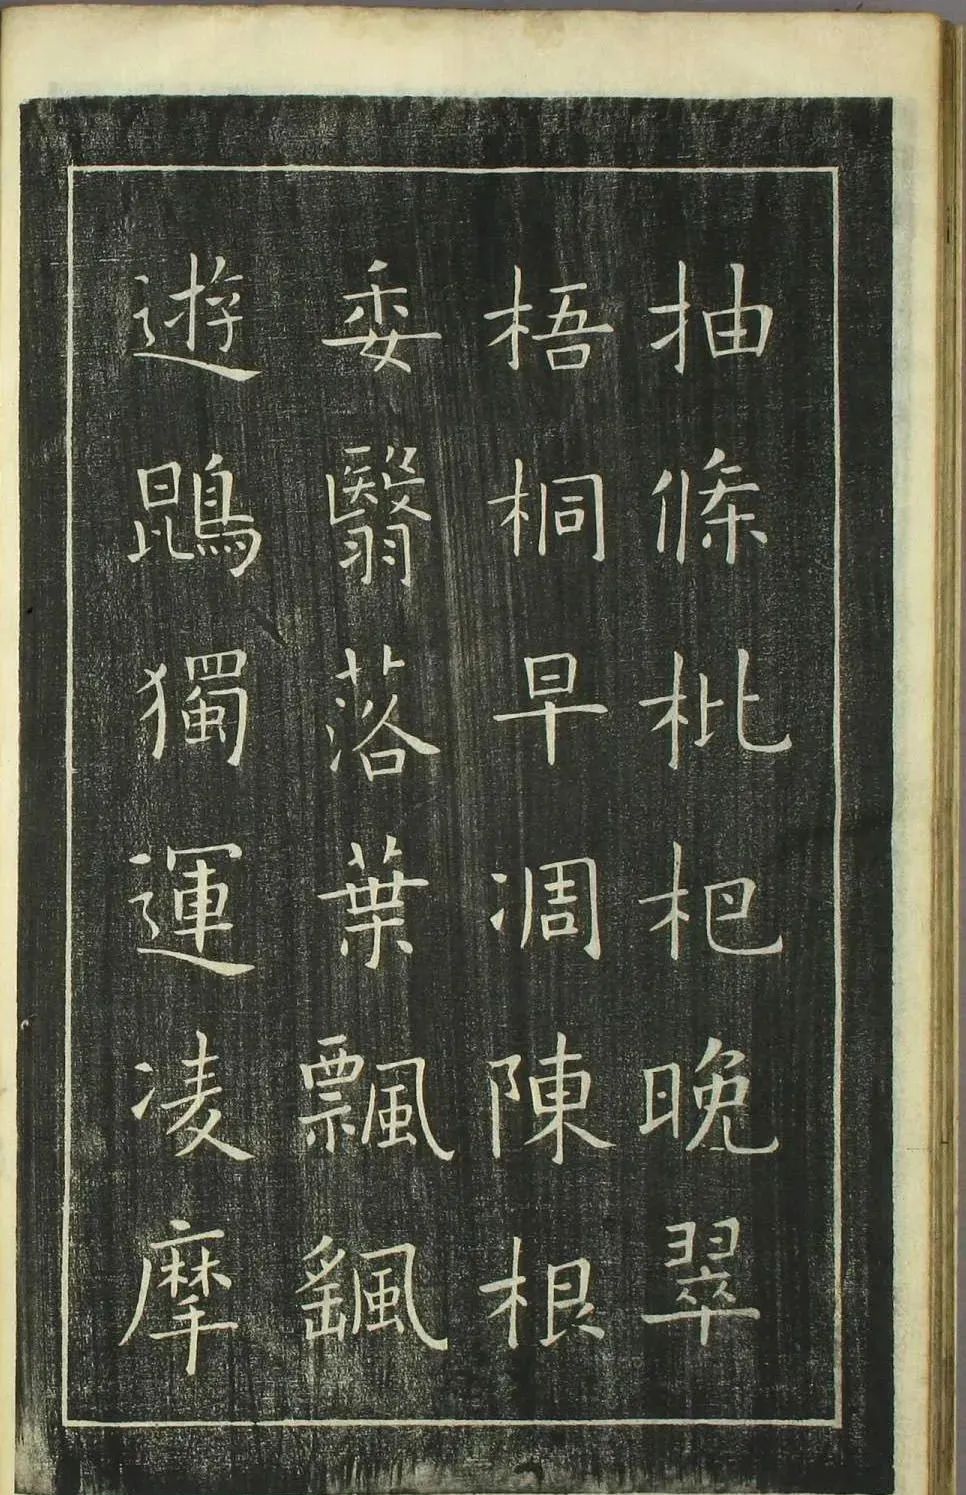 抽條枇杷晚翠
梧桐早凋陳根
委翳落葉飄颻
遊鵾獨運凌摩